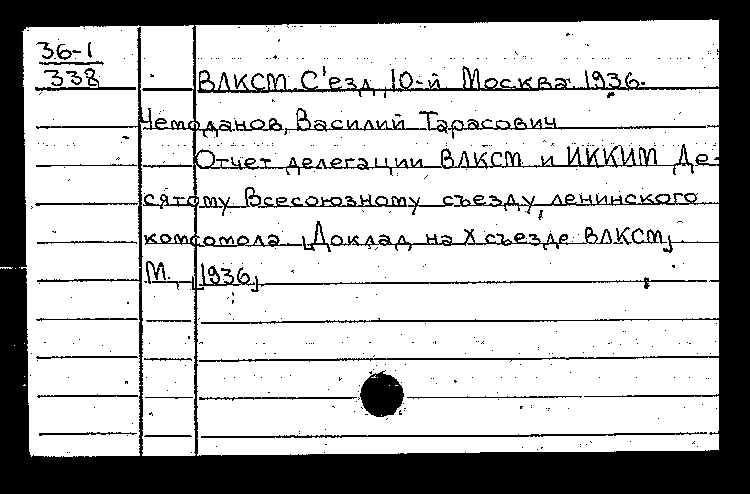 36-1
338
ВЛКСМ С'езд, 10-й Москва 1936.
Чемоданов, Василий Тарасович
Отчет делегации ВЛКСМ и ИККИМ Де-
сятому Всесоюзному съезду ленинского
комсомола [Доклад на X съезде ВЛКСМ]
М., [1936]